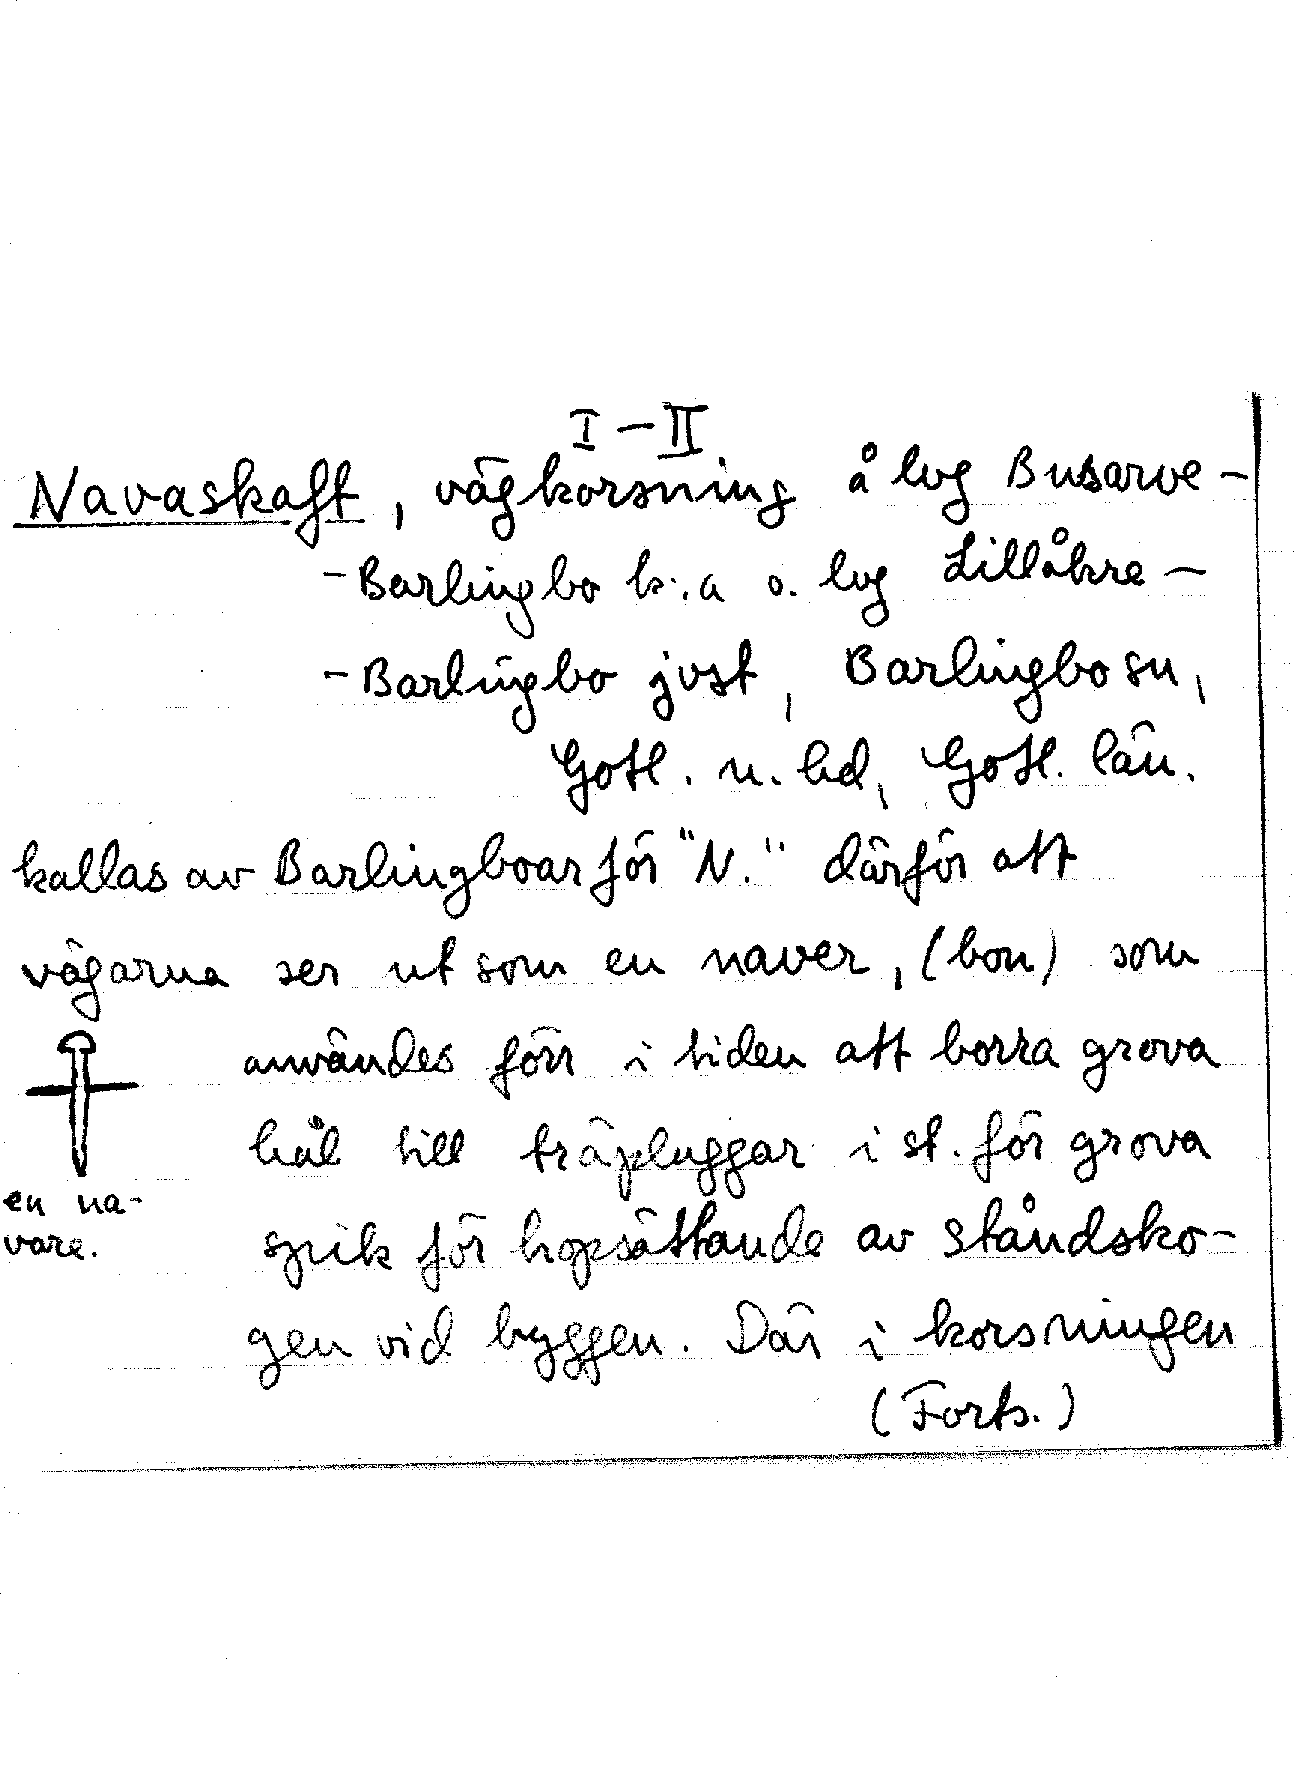 I – II
Navaskaft, vägkorsning å lvg Busarve-
-Barlingbo k:a o. lvg Lillåkre-
-Barlingbo just, Barlingbo sn,
Gotl. n. hd, Gotl. län.
kallas av Barlingboar för "N." därför att
vägarna ser ut som en naver, (borr) som
användes förr i tiden att borra grova
hål till träpluggar i st. för grova
spik för hopsättande av ståndsko-
gen vid byggen. Där i korsningen
(Forts.)
en na-
vare.